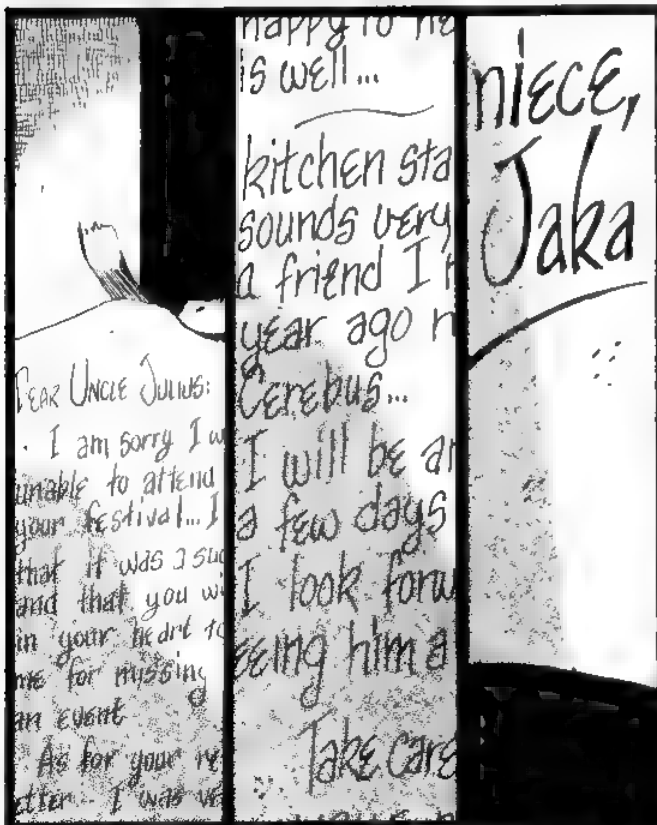 DEAR UNCLE JULIUS:
I am sorry I w
unable to attend
your festival... I
that it was a suc
and that you wi
in your heart to
me for missing
an event
As for your re
etter I was ve
happy to he
is well...
kitchen sta
sounds very
a friend I r
year ago n
Cerebus...
I will be ar
a few days
I look forw
eeing him a
Take care
niece,
Jaka